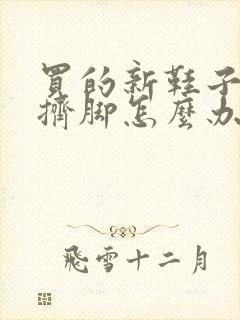 買的新鞋子
擠腳怎麼办
飛雪十二月